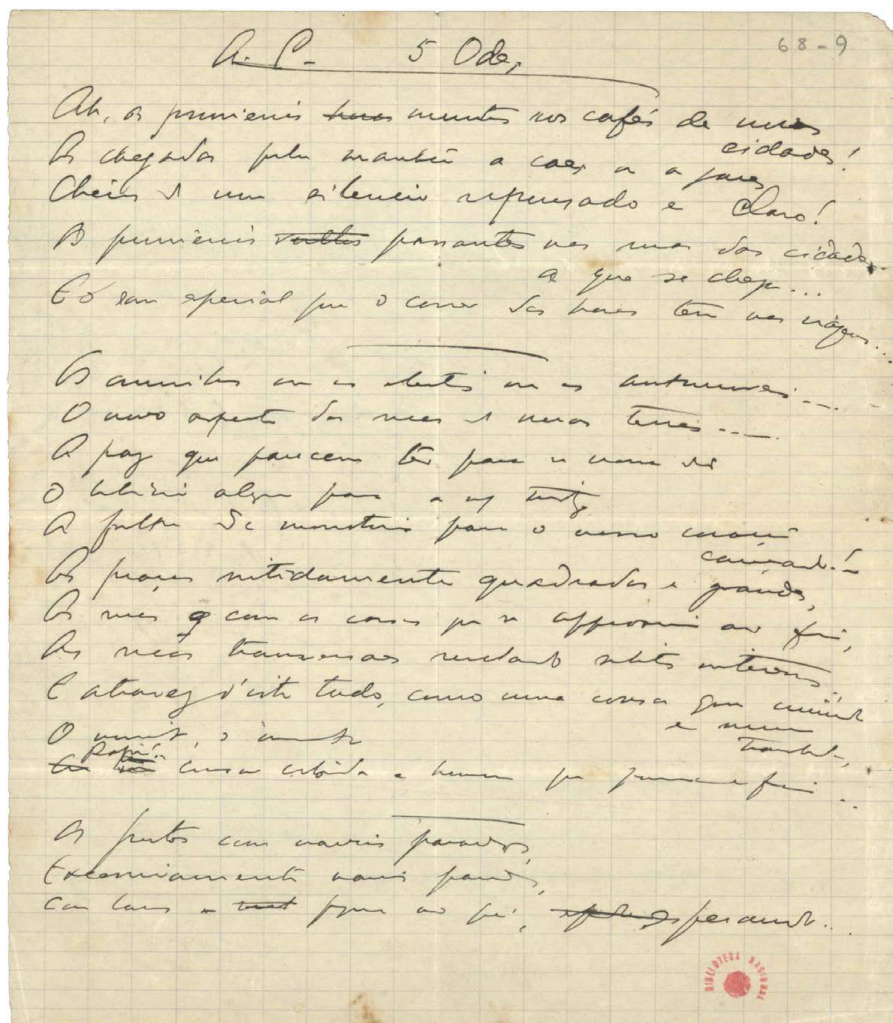 A. C. 5 Odes
68-9
Ah, os primeiros minutos nos cafés de novas
cidades!
As chegadas pela manhã a caes ou a gares
Cheios de um silencio repousado e claro!
Os primeiros passantes nas ruas das cidades
a que se chega...
E o som especial que o correr das horas tem nas viagens...
Os omnibus ou os electricos ou os automoveis...
O novo aspecto das ruas de novas terras...
A paz que parecem ter para a nossa dôr
O bulicio alegre para a nossa tristeza
A falta de monotonia para o nosso coração
cansado!
As praças nitidamente quadradas e grandes,
As ruas com as casas que se approximam ao fim,
As ruas transversaes revelando subitos interesses,
E atravez d'isto tudo, como uma cousa que inunda
e nunca
transborda,
O movimento, o movimento
Rapida cousa colorida e humana que passa e fica...
Os portos com navios parados,
Excessivamente navios parados,
Com barcos pequenos ao pé, esperando...
BIBLIOTECA NACIONAL